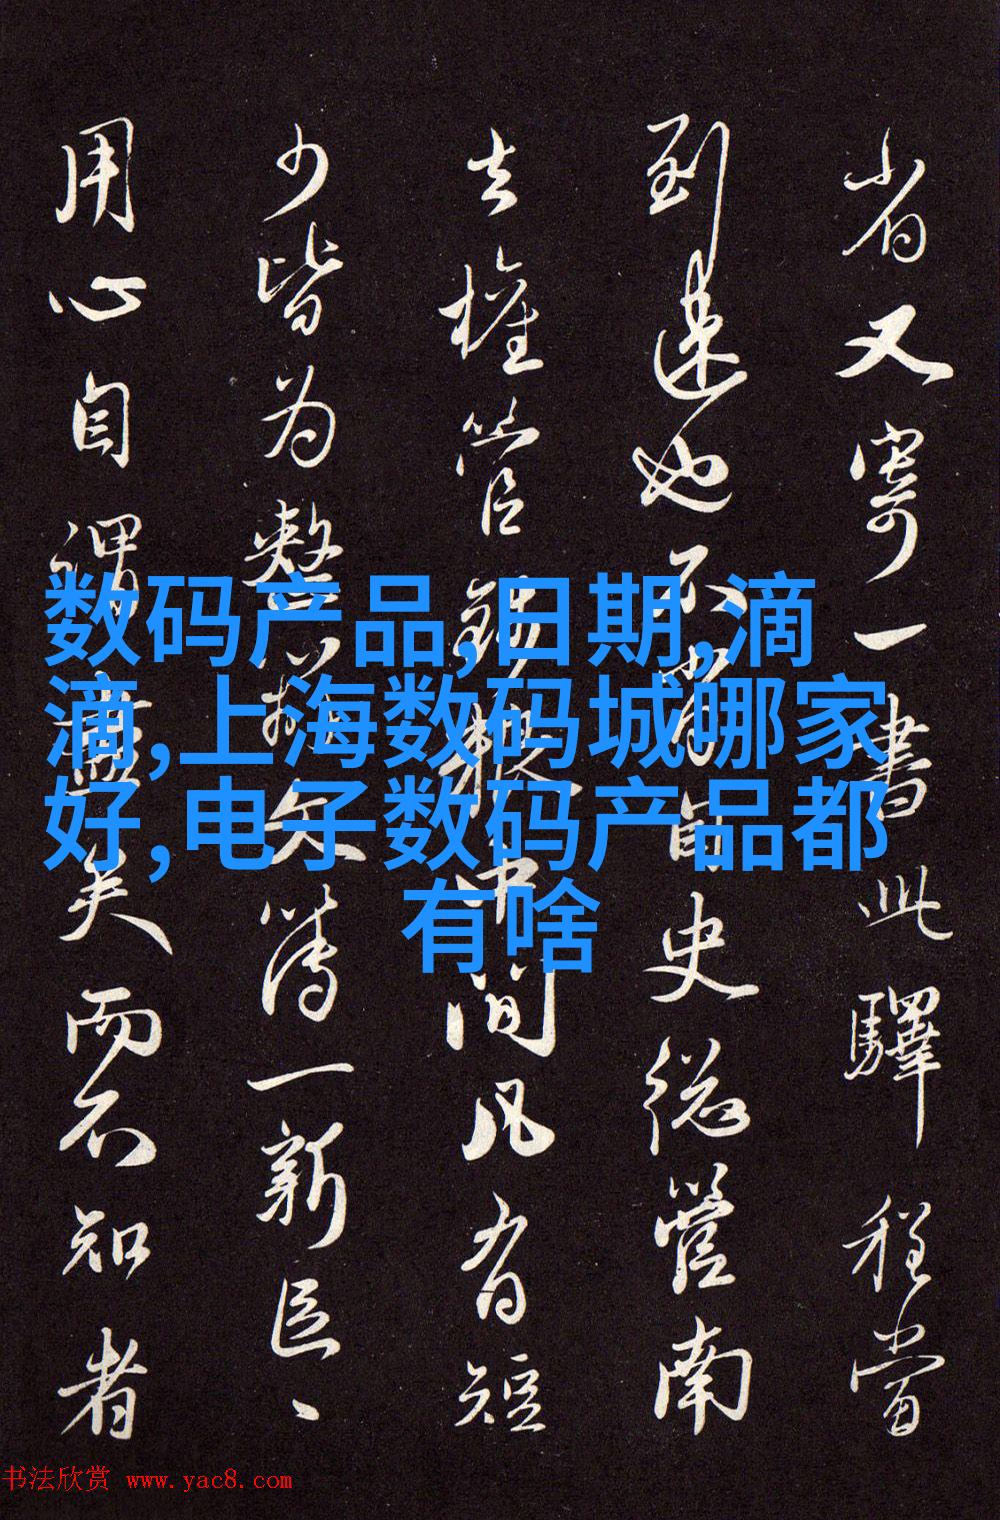 数码产品,日期,滴
滴,上海数码城哪家
好,电子数码产品都
有啥
省又寄一書此驛程當
到速也不自史總管南
去權管中間凡有短
少皆為整一新區、
用心自謂盡矣而不知者
书法欣赏 www.yac8.com